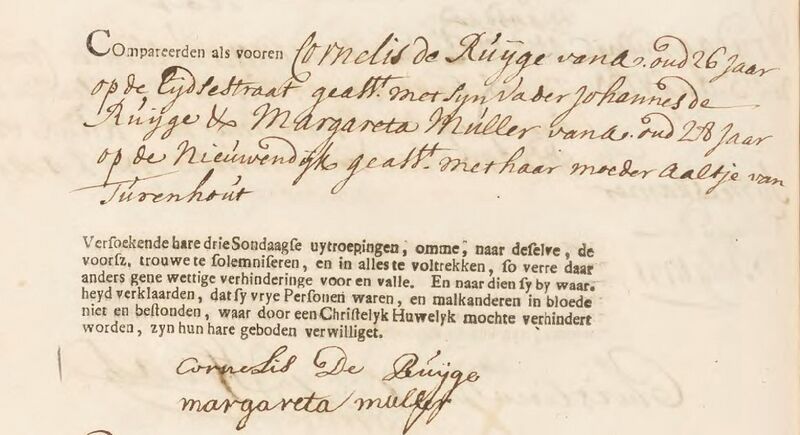 Compareerden als vooren Cornelis de Ruijge van A. oud 26 Jaar
op de Lydsestraat geasst. met syn Vader Johannes de
Ruijge & Margareta Muller van A. oud 28 Jaar
op de Nieuwendijk geasst. met haar moeder Aaltje van
Turenhout
Versoekende hare drie Sondaagse uytroepingen, omme, naar deselve, de
voorsz. trouwe te solemniseren, en in alles te voltrekken, so verre daar
anders gene wettige verhinderinge voor en valle. En naar dien sy by waar-
heyd verklaarden, dat sy vrye Personen waren, en malkanderen in bloede
niet en bestonden, waar door een Christelyk Huwelyk mochte verhindert
worden, zyn hun hare geboden verwilliget.
Cornelis De Ruijge
margareta muller